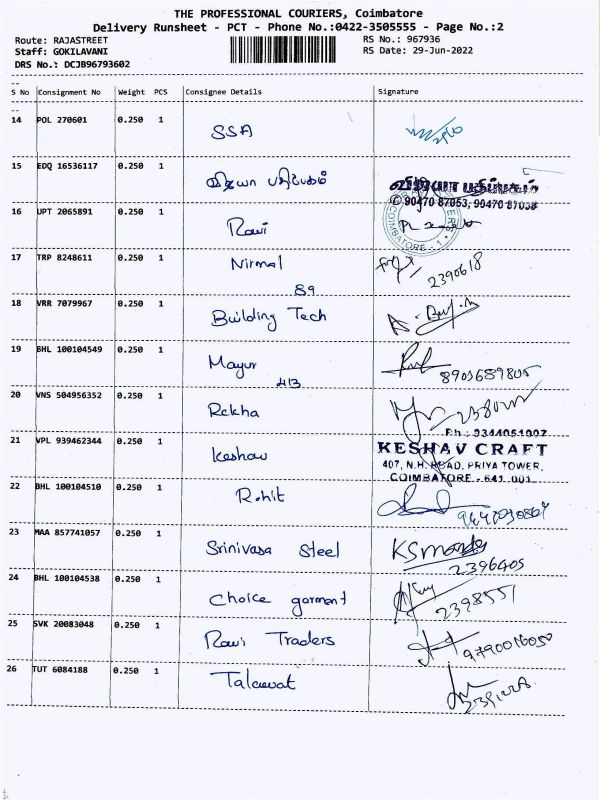 THE PROFESSIONAL COURIERS, Coimbatore
Delivery Runsheet - PCT - Phone No.:0422-3505555 - Page No.:2
Route: RAJASTREET
RS No.: 967936
Staff: GOKILAVANI
RS Date: 29-Jun-2022
DRS No.: DCJB96793602
S No Consignment No Weight PCS Consignee Details Signature
14 POL 270601 0.250 1 SSA
15 EDQ 16536117 0.250 1 விஜயா பதிப்பகம் விஜயா பதிப்பகம்
✆ 90470 87053, 90470 87058
16 UPT 2065891 0.250 1 Ravi
COIMBATORE - 1
17 TRP 8248611 0.250 1 Nirmal 2390618
89
18 VRR 7079967 0.250 1 Building Tech
19 BHL 100104549 0.250 1 Mayur 8903689805
413
20 VNS 504956352 0.250 1 Rekha
Ph : 9344051007
21 VPL 939462344 0.250 1 Keshav KESHAV CRAFT
407, N.H. ROAD, PRIYA TOWER,
COIMBATORE - 641 001
22 BHL 100104510 0.250 1 Rohit
23 MAA 857741057 0.250 1 Srinivasa Steel
2396405
24 BHL 100104538 0.250 1 Choice garment 2398551
25 SVK 20083048 0.250 1 Ravi Traders 9790016050
26 TUT 6084188 0.250 1 Talawat